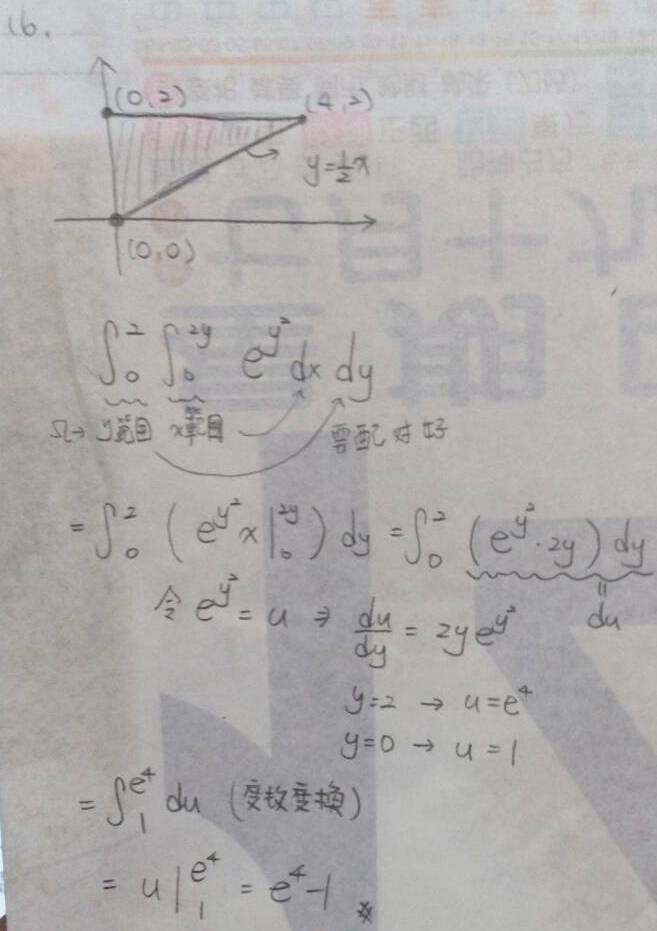 16.
(0,2) (4,2)
y=½x
(0,0)
∫₀² ∫₀²ʸ e^{y²} dx dy
Ω→ y範囲 x範囲 要配对好
= ∫₀² ( e^{y²} x |₀²ʸ ) dy = ∫₀² (e^{y²}·2y) dy
令 e^{y²} = u ⇒ du/dy = 2ye^{y²} du
y=2 → u=e⁴
y=0 → u=1
= ∫₁^{e⁴} du (变数变換)
= u |₁^{e⁴} = e⁴-1 ※